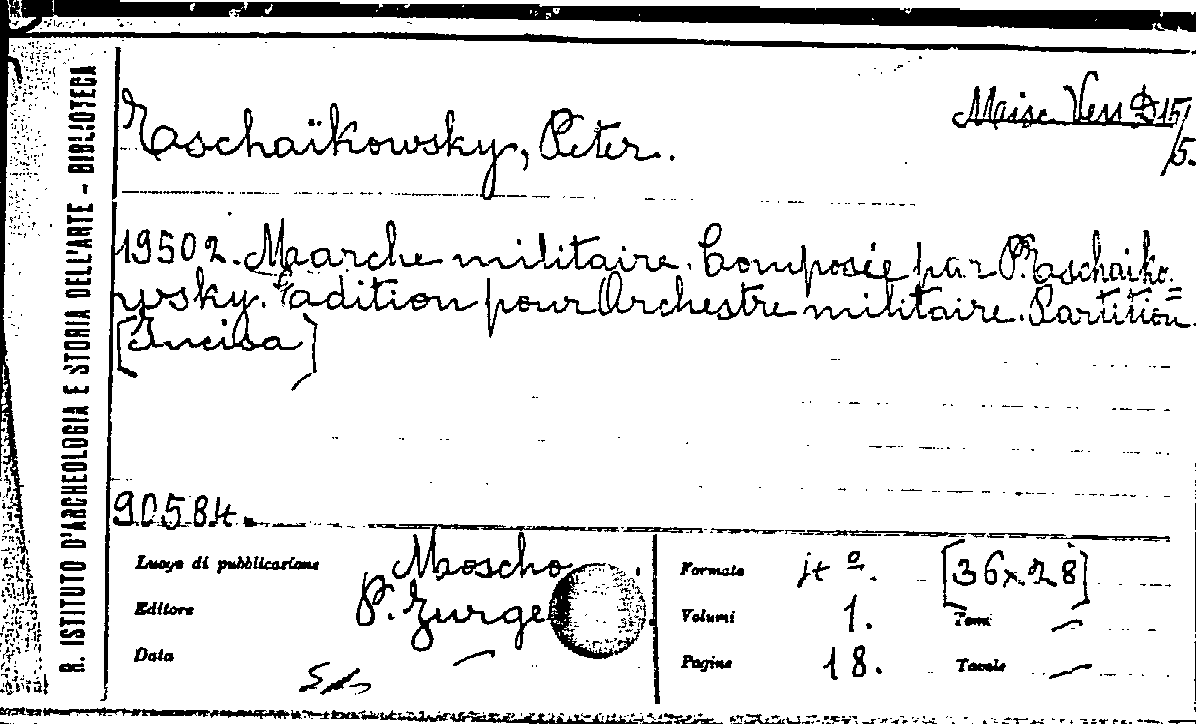 R. ISTITUTO D'ARCHEOLOGIA E STORIA DELL'ARTE - BIBLIOTECA
Taschaïkowsky, Peter.
Misc. Vess D 15/
5.
19502. Marche militaire. Composée par P. Tschaiko=
wsky. Edition pour Orchestre militaire. Partition.
[Incisa]
90584.
Luogo di pubblicazione Moscho
Editore P. Jurge
Data
Formato 4º. [36x28]
Volumi 1. Tomi —
Pagine 18. Tavole —